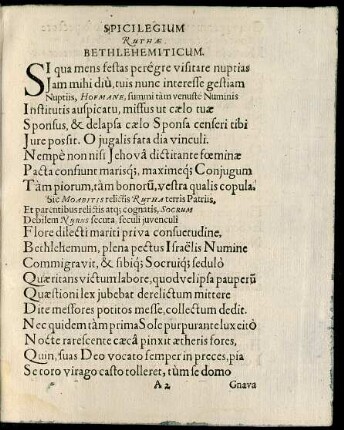 SPICILEGIUM
RUTHÆ
BETHLEHEMITICUM.
SI qua mens festas peregre visitare nuptias
Jam mihi diù, tuis nunc interesse gestiam
Nuptiis, HOFMANE, summi tàm venustè Numinis
Institutis auspicatu, missus ut cælo tuæ
Sponsus, & delapsa cælo Sponsa censeri tibi
Jure possit. O jugalis fata dia vinculi.
Nempè non nisi Jehovâ dictitante fœminæ
Pacta confiunt marisq;, maximeq; Conjugum
Tàm piorum, tàm bonorũ, vestra qualis copula.
Sic MOABITIS relictis RUTHA terris Patriis,
Et parentibus relictis atq; cognatis, SOCRUM
Debilem NURUS secuta, seculi juvenculi
Flore dilecti mariti priva consuetudine,
Bethlehemum, plena pectus Israëlis Numine
Commigravit, & sibiq; Socruiq; sedulò
Quæritans victum labore, quod vel ipsa pauperũ
Quæstioni lex jubebat derelictum mittere
Dite messores potitos messe, collectum dedit.
Nec quidem tàm prima Sole purpurante lux citò
Nocte rarescente cæcâ pinxit ætheris fores,
Quin, suas Deo vocato semper in preces, pia
Se toro virago casto tolleret, tùm se domo
A 2 Gnava